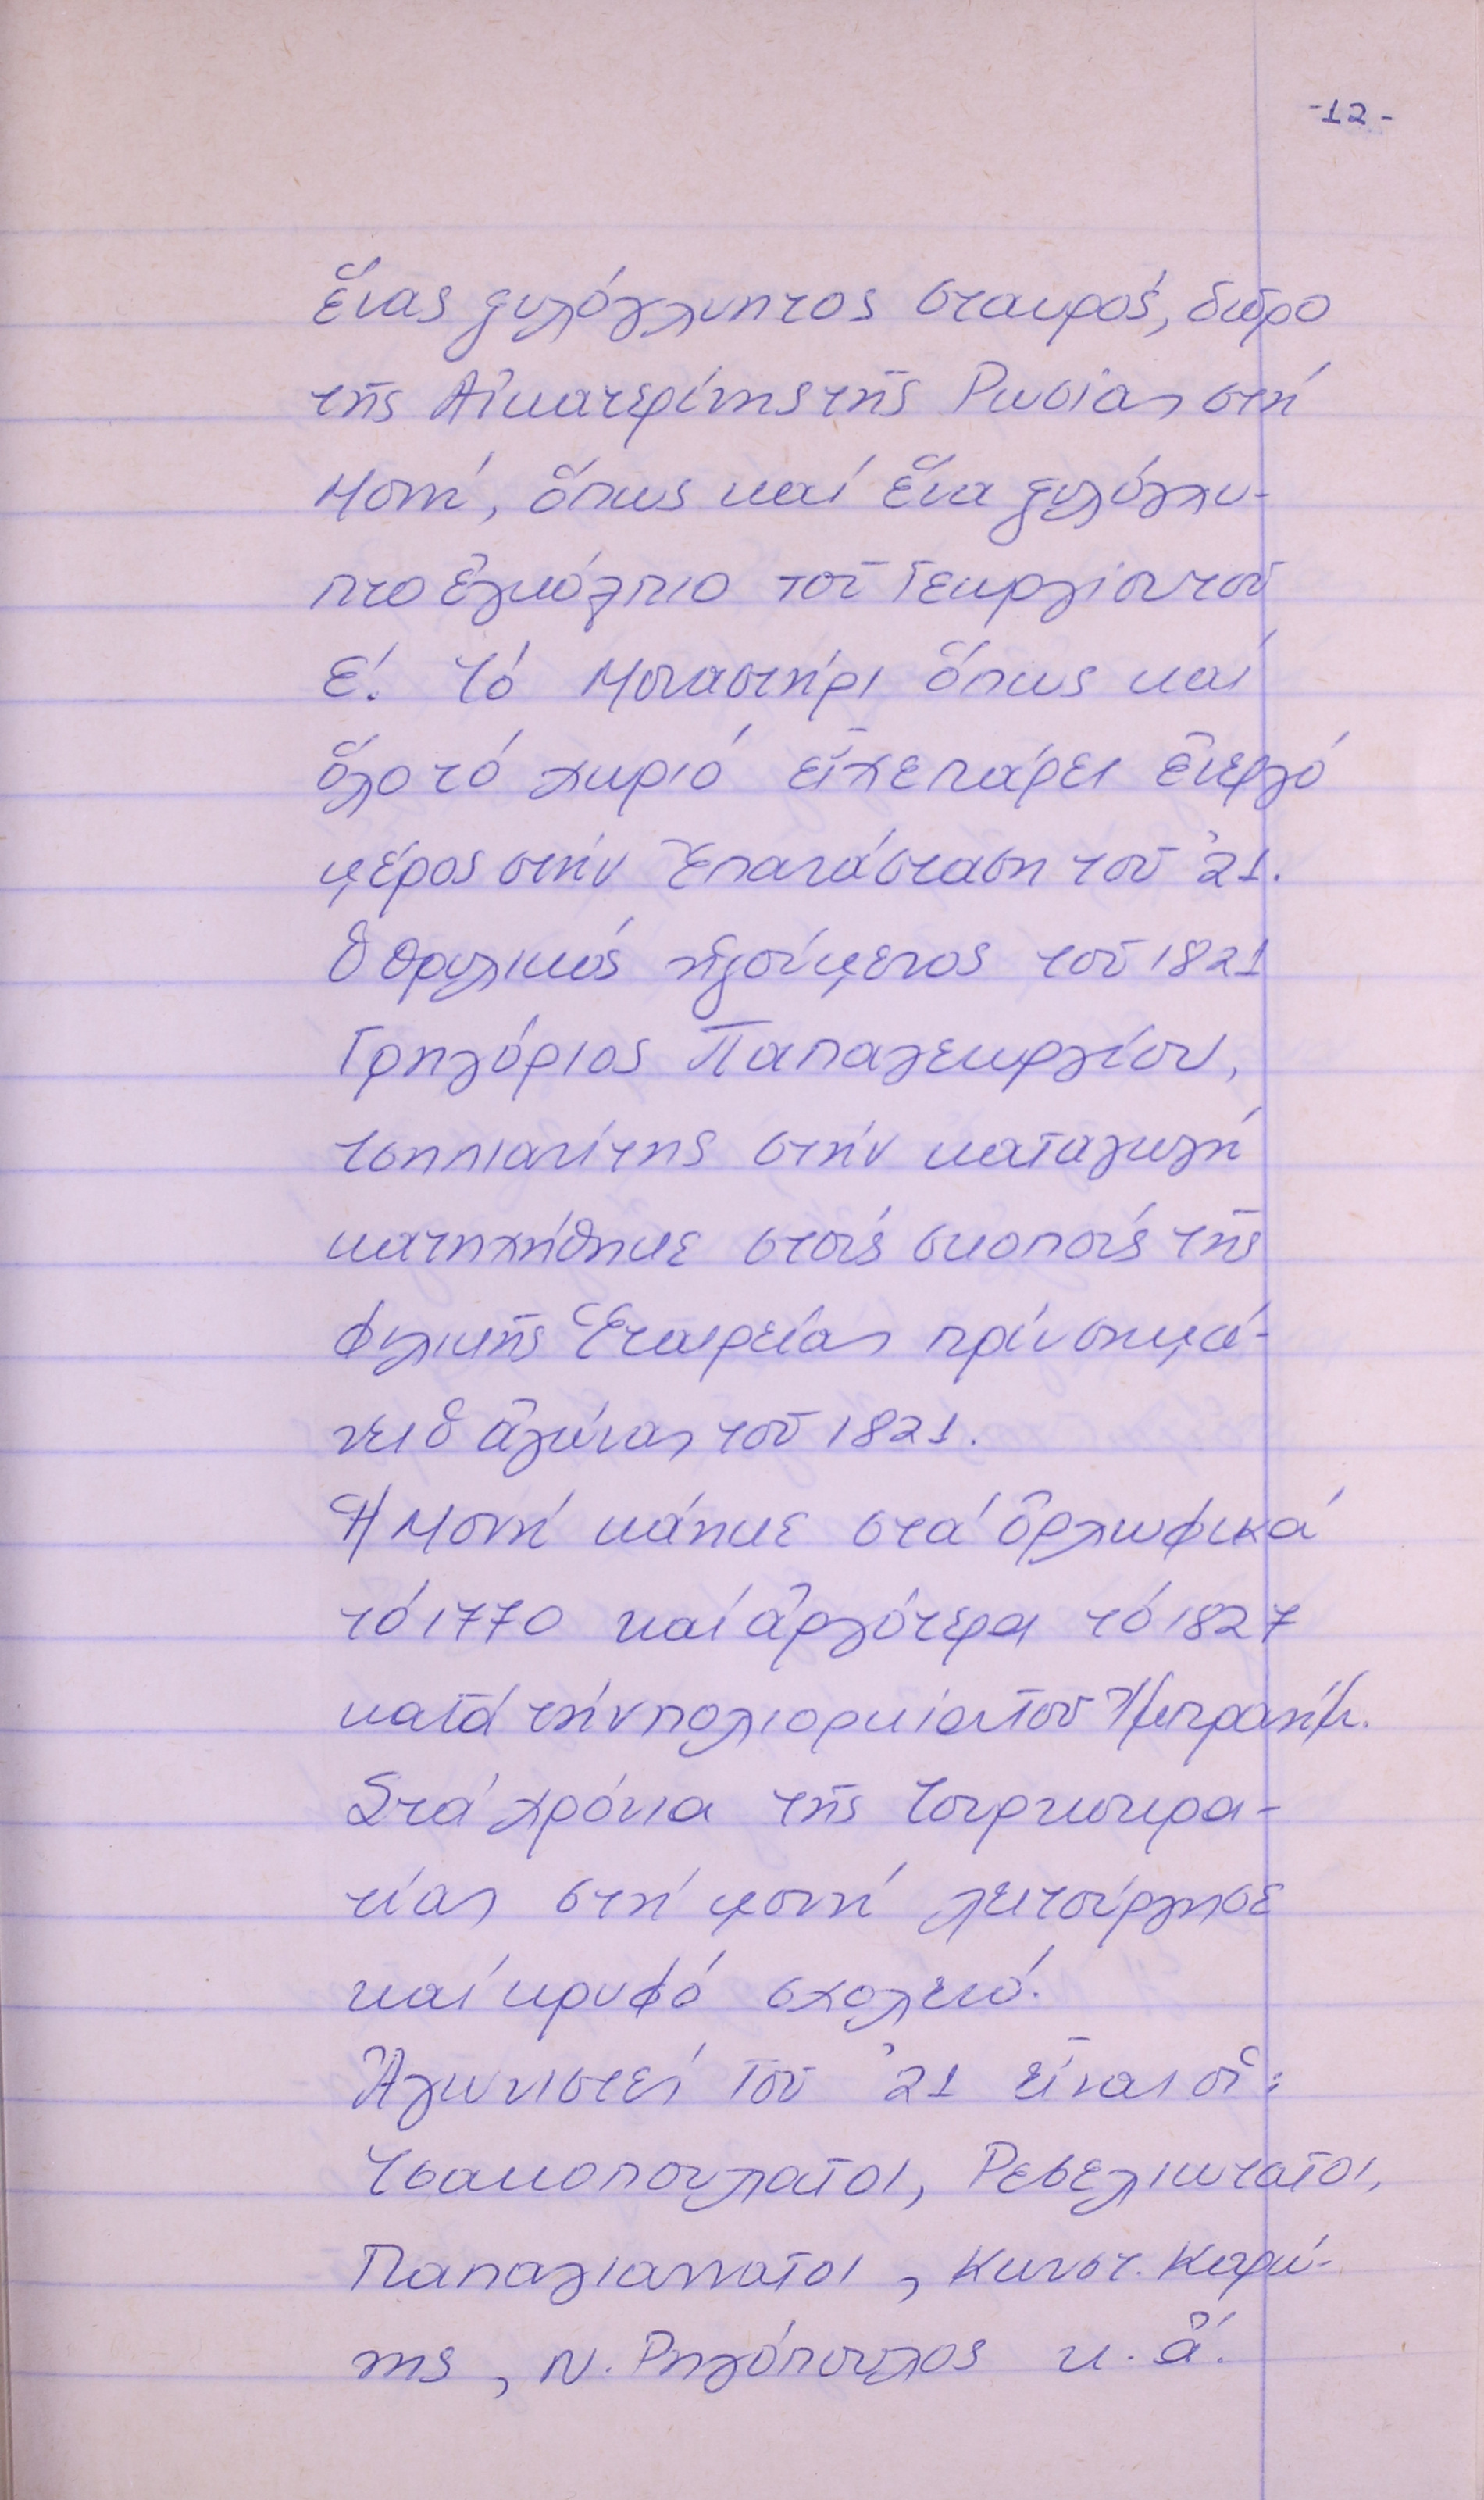 -12-
ἕνας ξυλόγλυπτος σταυρός, δῶρο
τῆς Αἰκατερίνης τῆς Ρωσίας στή
Μονή, ὅπως καί ἕνα ξυλόγλυ-
πτο ἐγκόλπιο τοῦ Γεωργίου τοῦ
Ε΄. Τό Μοναστήρι ὅπως καί
ὅλο τό χωριό εἶχε πάρει ἐνεργό
μέρος στήν Ἐπανάσταση τοῦ '21.
Ὁ θρυλικός ἡγούμενος τοῦ 1821
Γρηγόριος Παπαγεωργίου,
τοπιανίτης στήν καταγωγή
κατηχήθηκε στούς σκοπούς τῆς
Φιλικῆς Ἑταιρείας πρίν σημά-
νει ὁ ἀγώνας τοῦ 1821.
Ἡ Μονή κάηκε στά Ὀρλωφικά
τό 1770 καί ἀργότερα τό 1827
κατά τήν πολιορκία τοῦ Ἠμπραήμ.
Στά χρόνια τῆς Τουρκοκρα-
τίας στή μονή λειτούργησε
καί κρυφό σχολειό.
Ἀγωνιστεί τοῦ '21 εἶναι οἱ:
Τσακοπουλαῖοι, Ρεβελιωταῖοι,
Παπαγιανναῖοι, Κωνστ.
Ν. Ρηγόπουλος κ.ἄ.